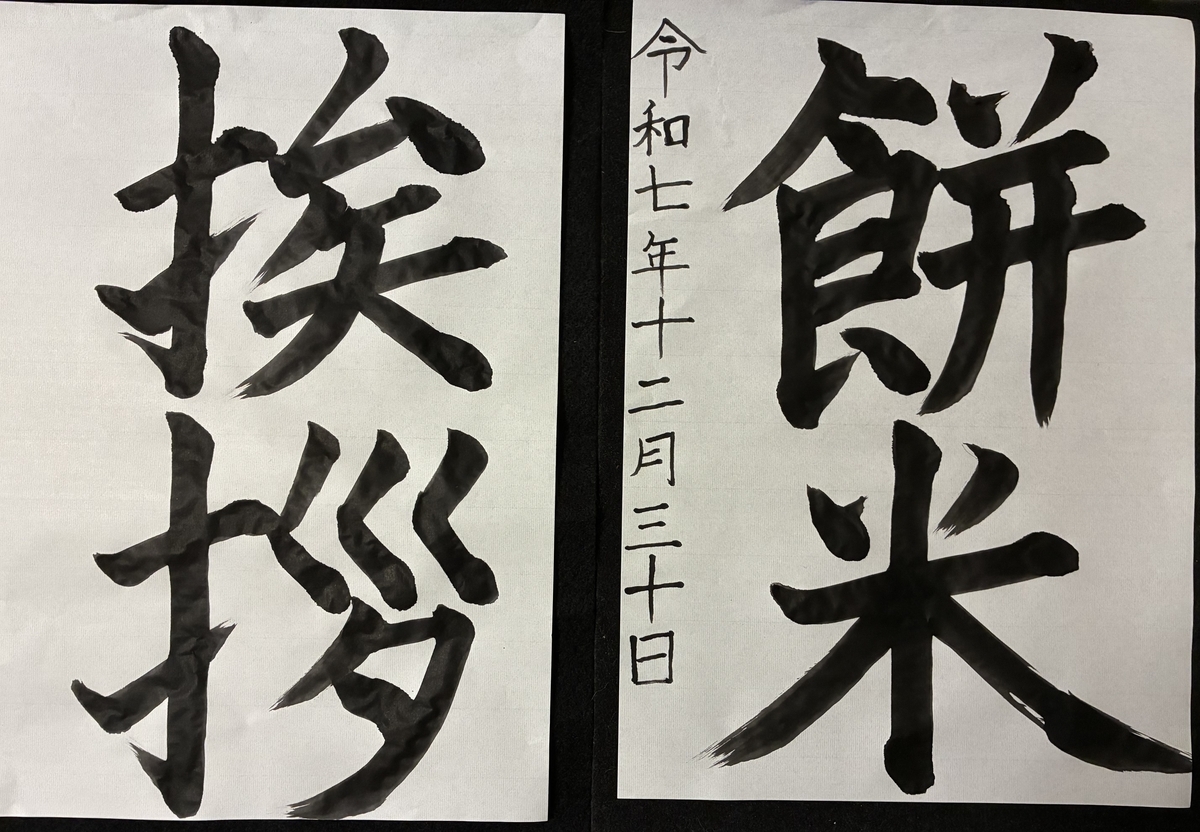 餅米
令和七年十二月三十日
挨拶